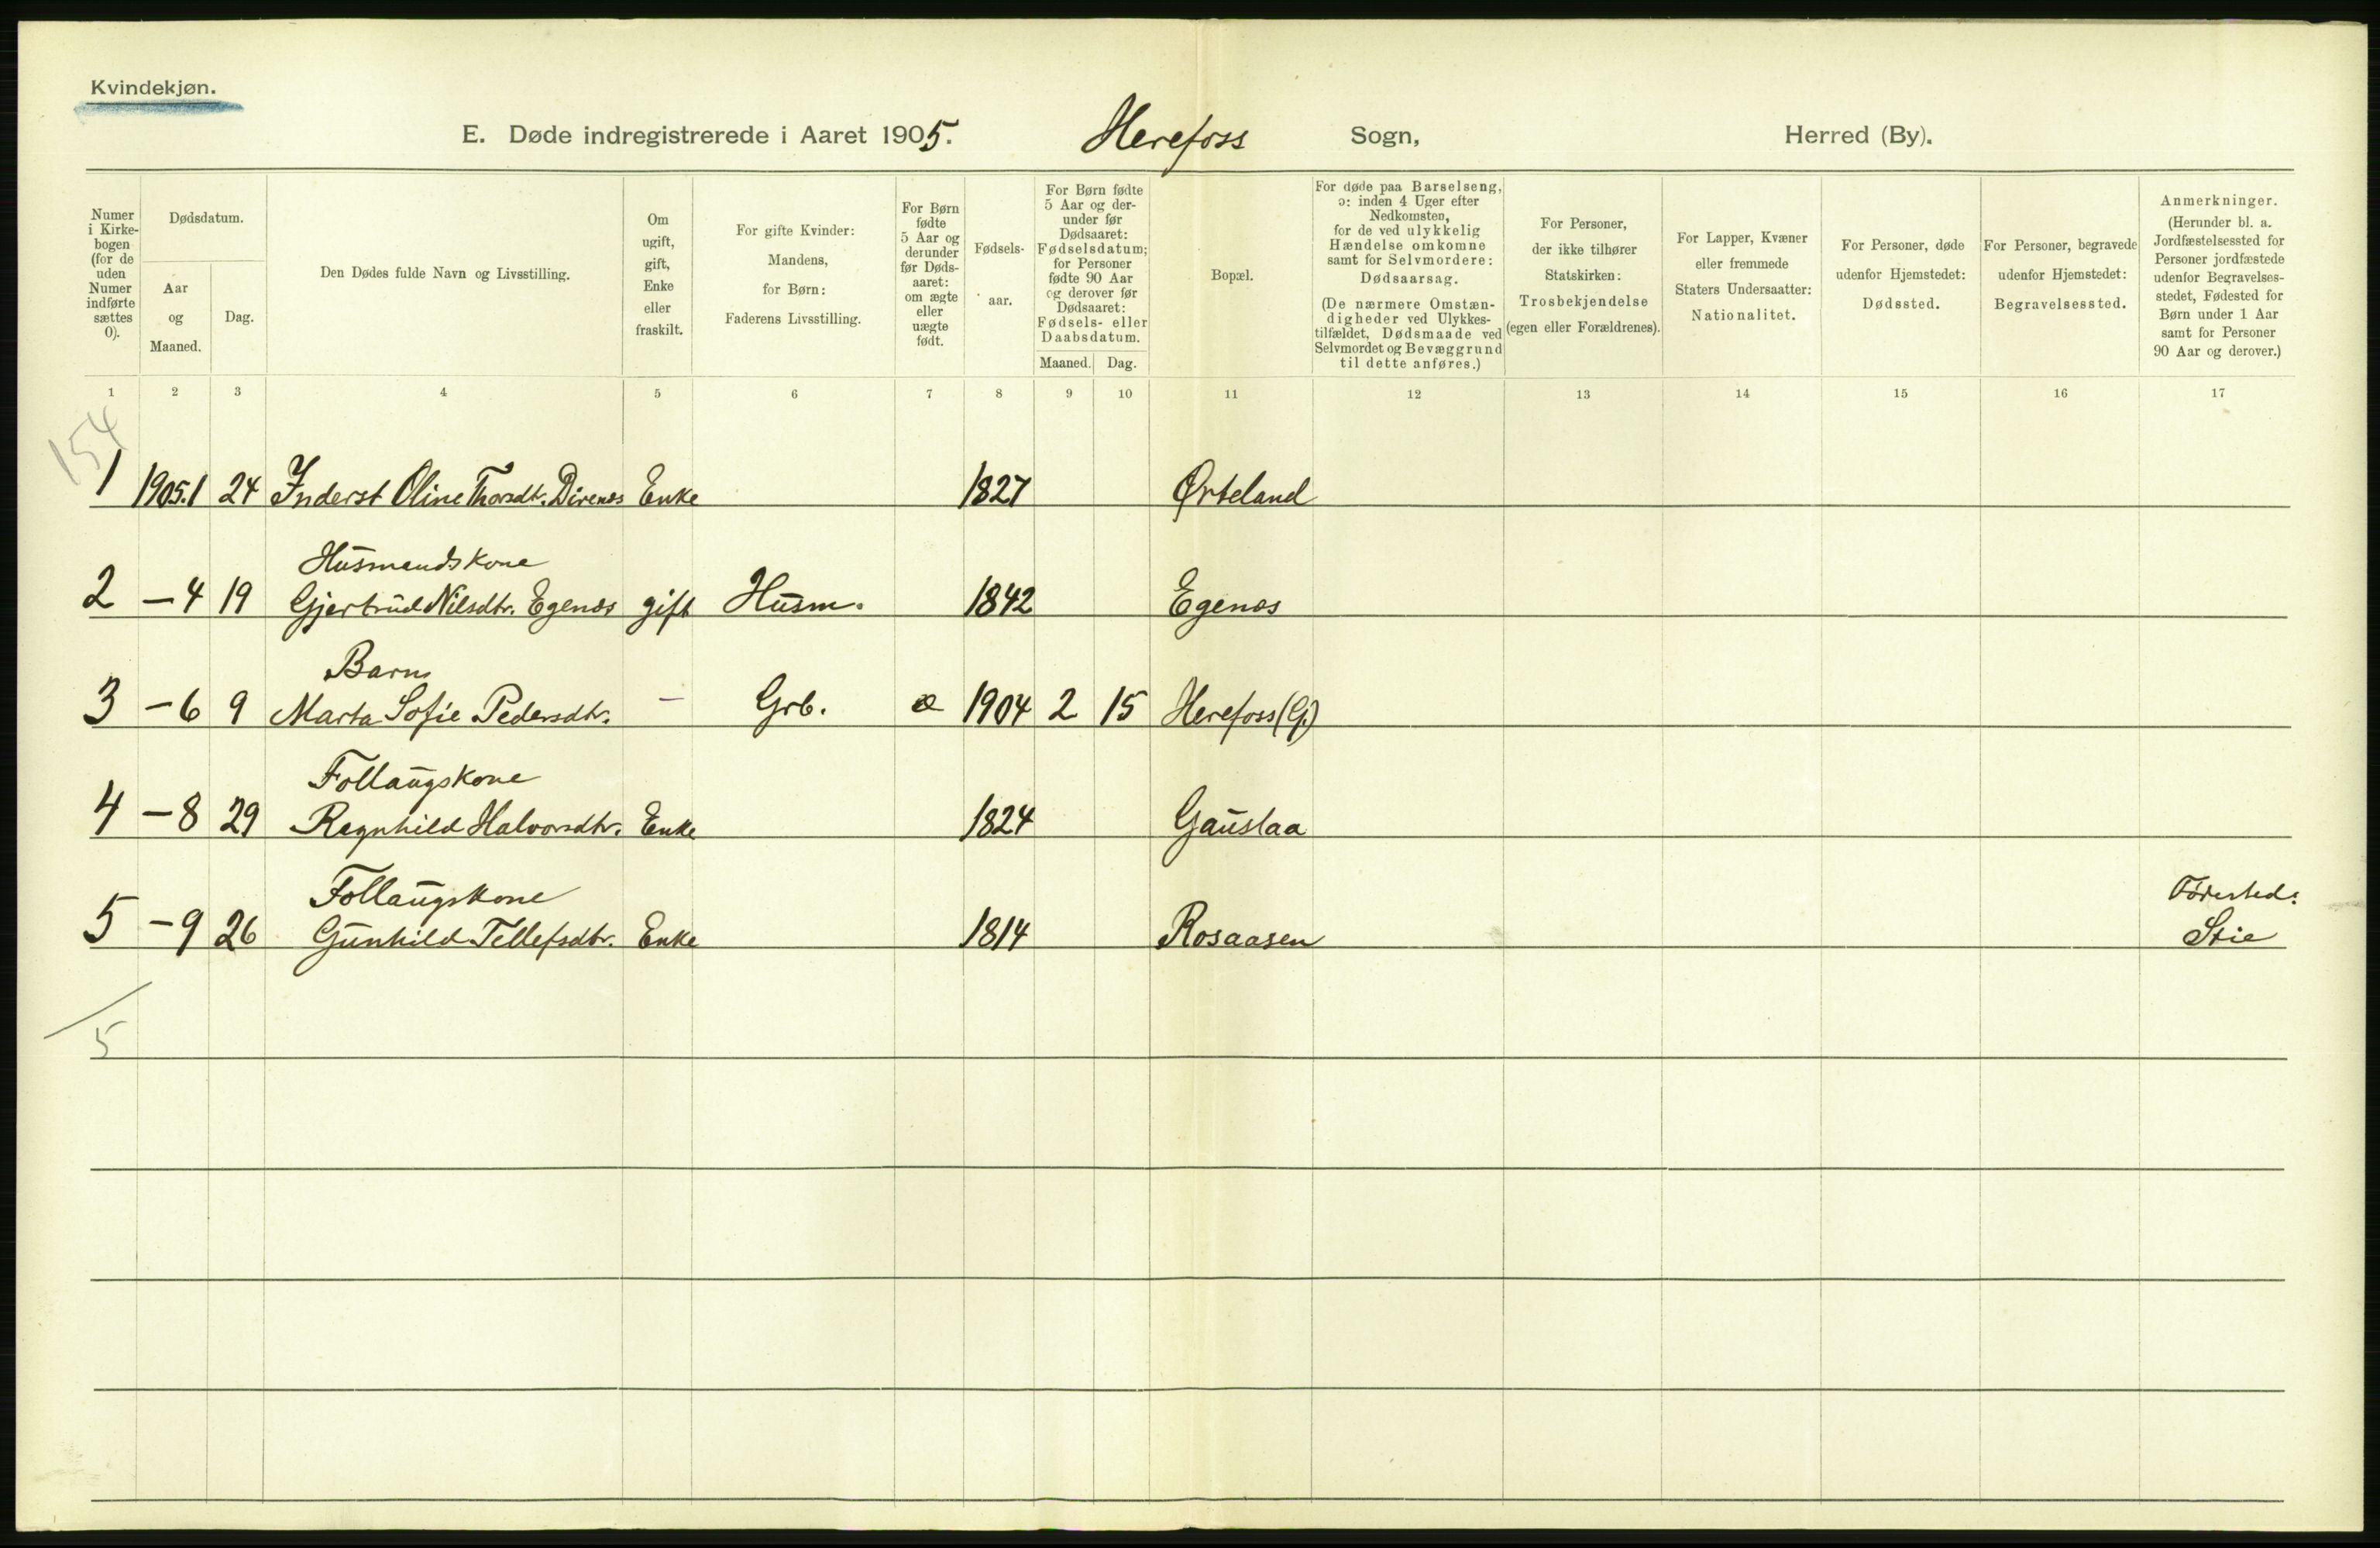 Kvindekjøn.
E. Døde indregistrerede i Aaret 1905. Herefoss Sogn, Herred (By).
Numer i Kirkebogen (for de uden Numer indførte sættes 0).
Dødsdatum.
Aar og Maaned.
Dag.
Den Dødes fulde Navn og Livsstilling.
Om ugift, gift, Enke eller fraskilt.
For gifte Kvinder: Mandens, for Børn: Faderens Livsstilling.
For Børn fødte 5 Aar og derunder før Dødsaaret: om ægte eller uægte født.
Fødselsaar.
For Børn fødte 5 Aar og derunder før Dødsaaret: Fødselsdatum; for Personer fødte 90 Aar og derover før Dødsaaret: Fødsels- eller Daabsdatum.
Maaned. Dag.
Bopæl.
For døde paa Barselseng, ɔ: inden 4 Uger efter Nedkomsten, for de ved ulykkelig Hændelse omkomne samt for Selvmordere: Dødsaarsag.
(De nærmere Omstændigheder ved Ulykkestilfældet, Dødsmaade ved Selvmordet og Bevæggrund til dette anføres.)
For Personer, der ikke tilhører Statskirken: Trosbekjendelse (egen eller Forældrenes).
For Lapper, Kvæner eller fremmede Staters Undersaatter: Nationalitet.
For Personer, døde udenfor Hjemstedet: Dødssted.
For Personer, begravede udenfor Hjemstedet: Begravelsessted.
Anmerkninger.
(Herunder bl. a. Jordfæstelsessted for Personer jordfæstede udenfor Begravelsesstedet, Fødested for Børn under 1 Aar samt for Personer 90 Aar og derover.)
1 2 3 4 5 6 7 8 9 10 11 12 13 14 15 16 17
154
1 1905.1 24 Inderst Oline Thorsdtr. Direnes Enke 1827 Ørteland
Husmandskone
2 – 4 19 Gjertrud Nilsdtr. Egenes gift Husm. 1842 Egenes
Barn
3 – 6 9 Marta Sofie Pedersdtr. – Grb. æ 1904 2 15 Herefoss (G.)
Follaugskone
4 – 8 29 Ragnhild Halvorsdtr. Enke 1824 Gauslaa
Follaugskone Fødested:
5 – 9 26 Gunhild Tellefsdtr. Enke 1814 Rosaasen Stie
5